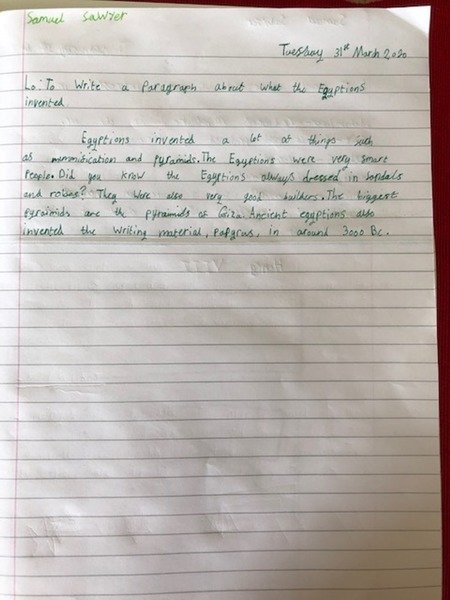 Samuel Sawyer
Tuesday 31st March 2020
Lo: To Write a Paragraph about what the Egyptions
invented
Egyptions invented a lot of things such
as mummification and pyramids. The Egyptions were very smart
People. Did you know the Egyptions always dressed in sandals
and robes? They were also very good builders. The biggest
pyraimids are the pyramids of Giza. Ancient egyptions also
invented the writing material, papyrus, in around 3000 Bc.